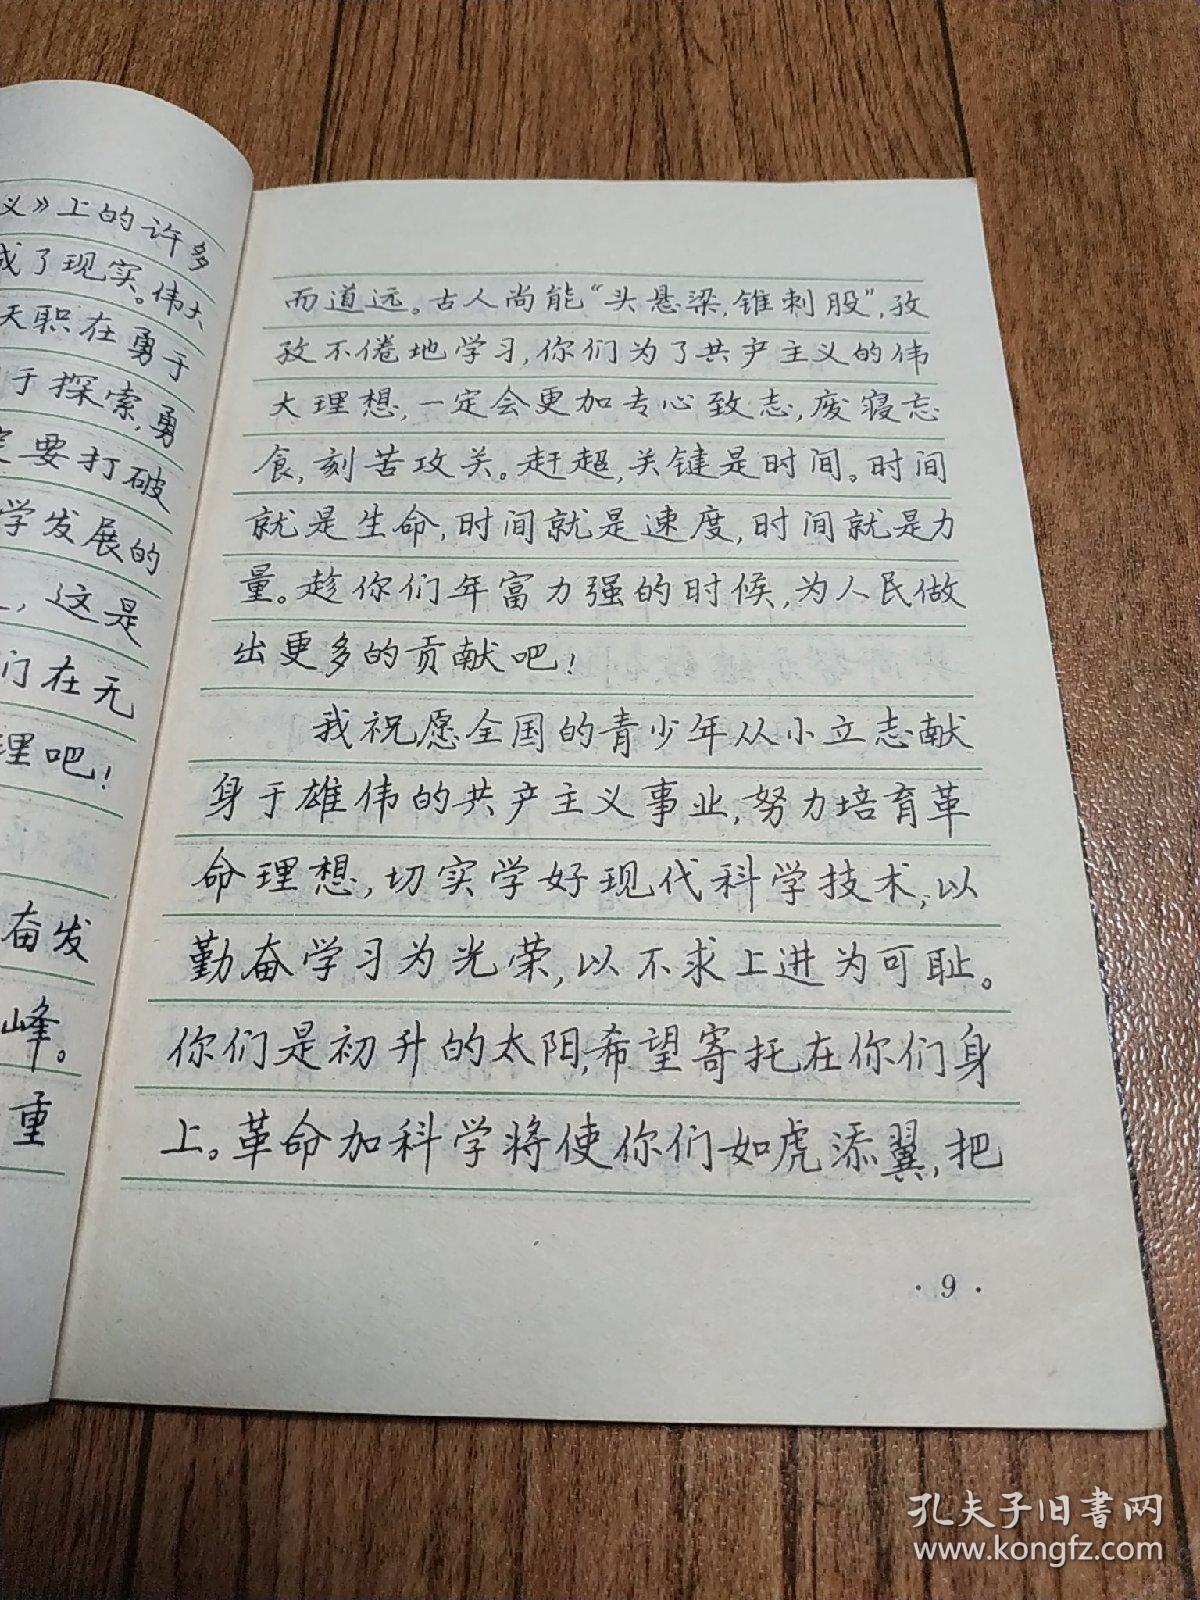 义》上的许多
成了现实。伟大
天职在勇于
于探索,勇
要打破
学发展的
,这是
们在无
理吧!
奋发
峰。
重
而道远。古人尚能“头悬梁,锥刺股”,孜
孜不倦地学习,你们为了共产主义的伟
大理想,一定会更加专心致志,废寝忘
食,刻苦攻关。赶超,关键是时间。时间
就是生命,时间就是速度,时间就是力
量。趁你们年富力强的时候,为人民做
出更多的贡献吧!
我祝愿全国的青少年从小立志献
身于雄伟的共产主义事业,努力培育革
命理想,切实学好现代科学技术,以
勤奋学习为光荣,以不求上进为可耻。
你们是初升的太阳,希望寄托在你们身
上。革命加科学将使你们如虎添翼,把
·9·
孔夫子旧書网
www.kongfz.com